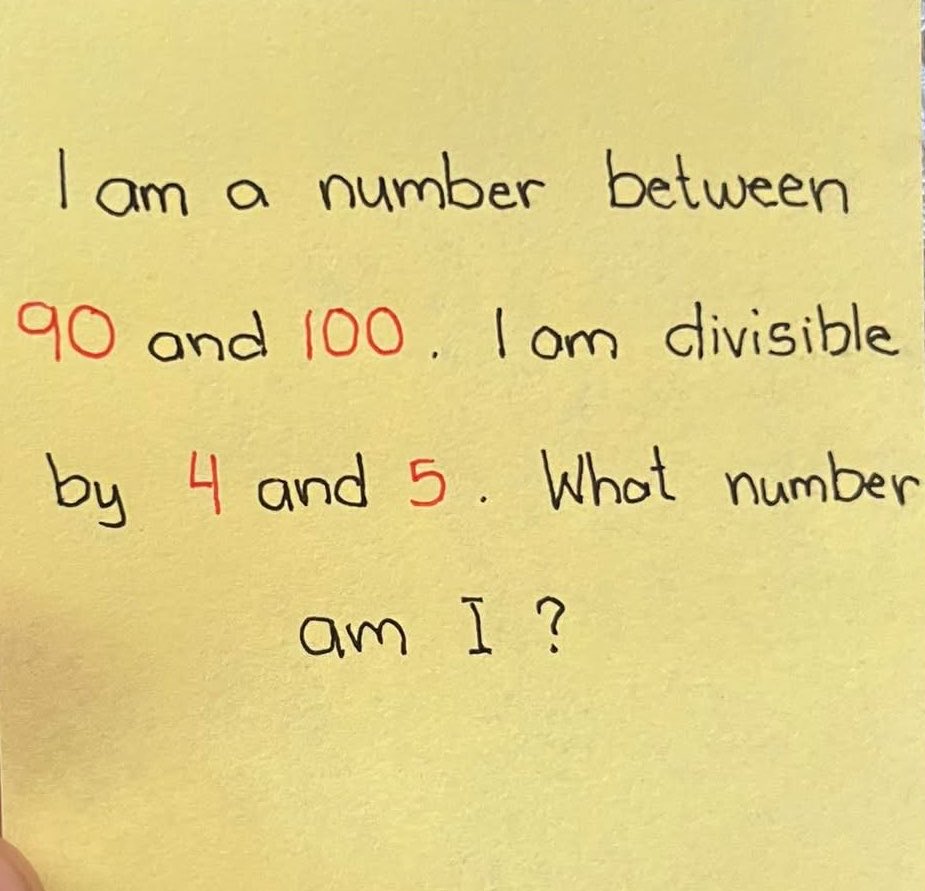 I am a number between
90 and 100. I am divisible
by 4 and 5. What number
am I ?